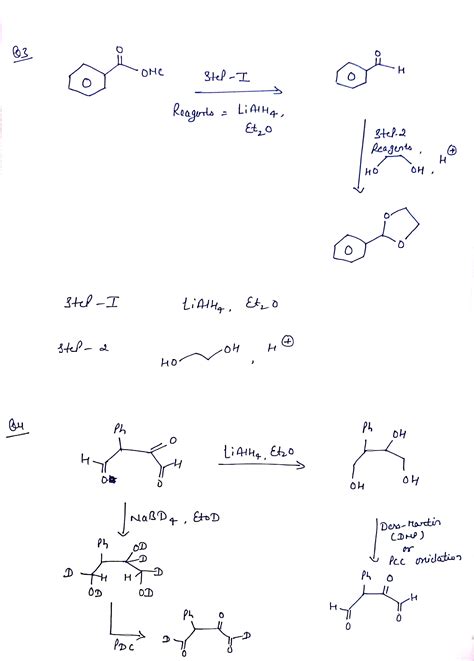 Q3
O
OMe
Step-I
Reagents = LiAlH4,
Et2O
O
H
Step-2
Reagents,
HO OH, H⊕
O
O
Step-I LiAlH4, Et2O
Step-2 HO OH, H⊕
Q4
Ph
O
H
O
H
O
LiAlH4, Et2O
Ph
OH
OH
OH
NaBD4, EtOD
Ph OD
D
D H H D
OD OD
PDC
Ph O
D D
O O
Dess-Martin
(DMP)
or
PCC oxidation
Ph O
H H
O O